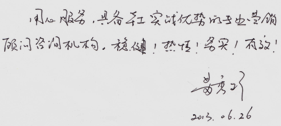 用心服务，具备红实战优势的专业营销
顾问咨询机构。稳健！热情！务实！有效！
2013.06.26